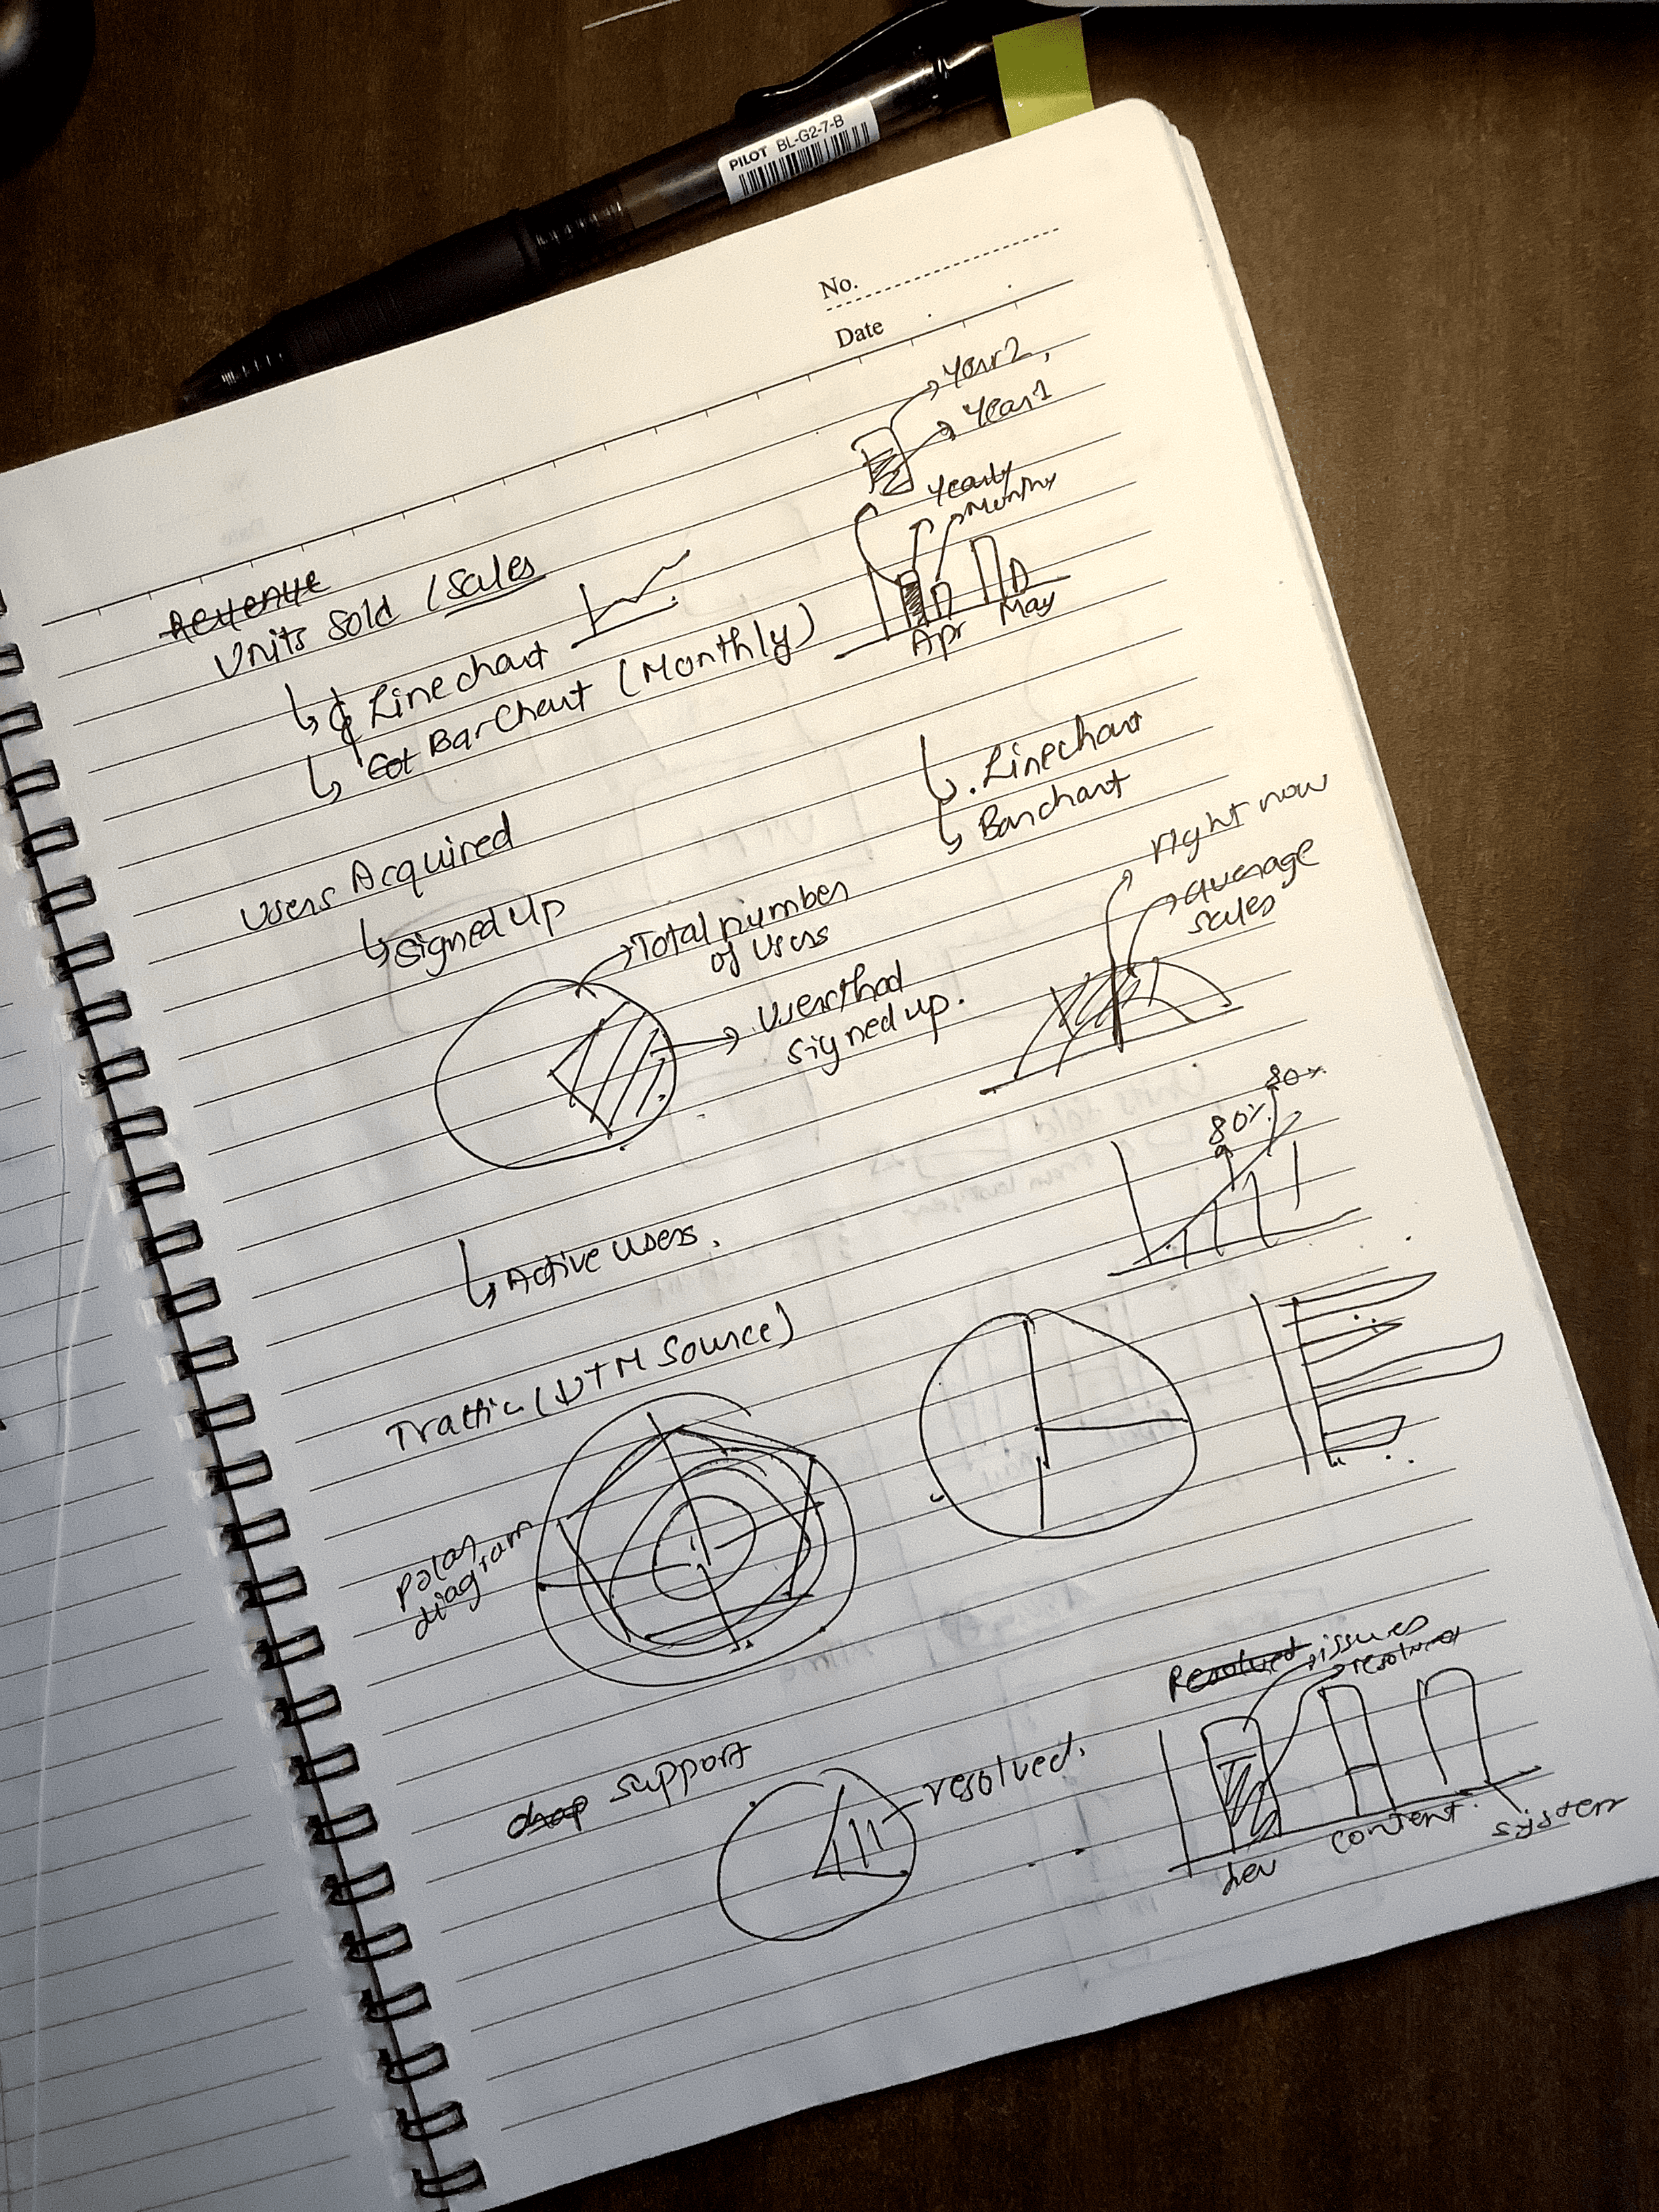 PILOT BL-G2-7-B
No.
Date
Year 2,
Year 1
Yearly
Monthly
Revenue
Units Sold / Sales
Line chart
Bar Chart (Monthly)
Apr May
Line chart
Bar chart
Users Acquired
Signed Up
Total number
of users
signed up.
right now
average
sales
80%
Active users.
Traffic (UTM Source)
Polar
diagram
Resolved issues
resolved
support
resolved.
dev content system